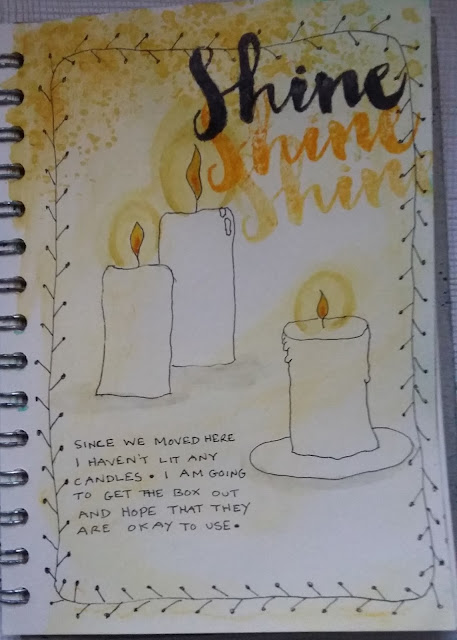 Shine
Shine
Shine
SINCE WE MOVED HERE
I HAVEN'T LIT ANY
CANDLES. I AM GOING
TO GET THE BOX OUT
AND HOPE THAT THEY
ARE OKAY TO USE.